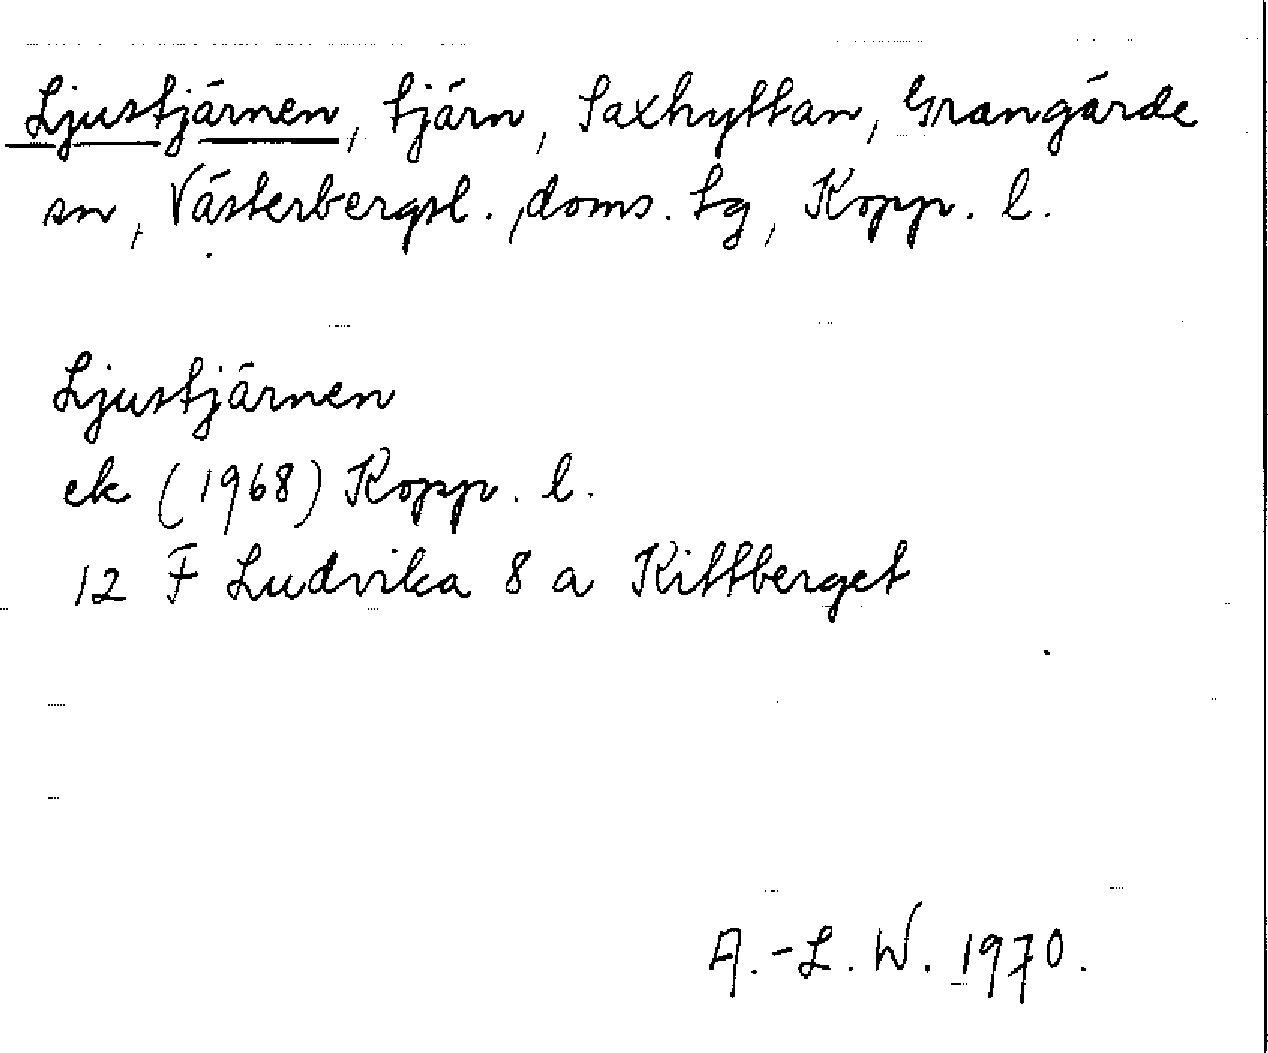 Ljustjärnen, tjärn, Saxhyttan, Grangärde
sn, Västerbergsl., doms. tg, Kopp. l.
Ljustjärnen
ek (1968) Kopp. l.
12 F Ludvika 8 a Kittberget
A.-L. W. 1970.